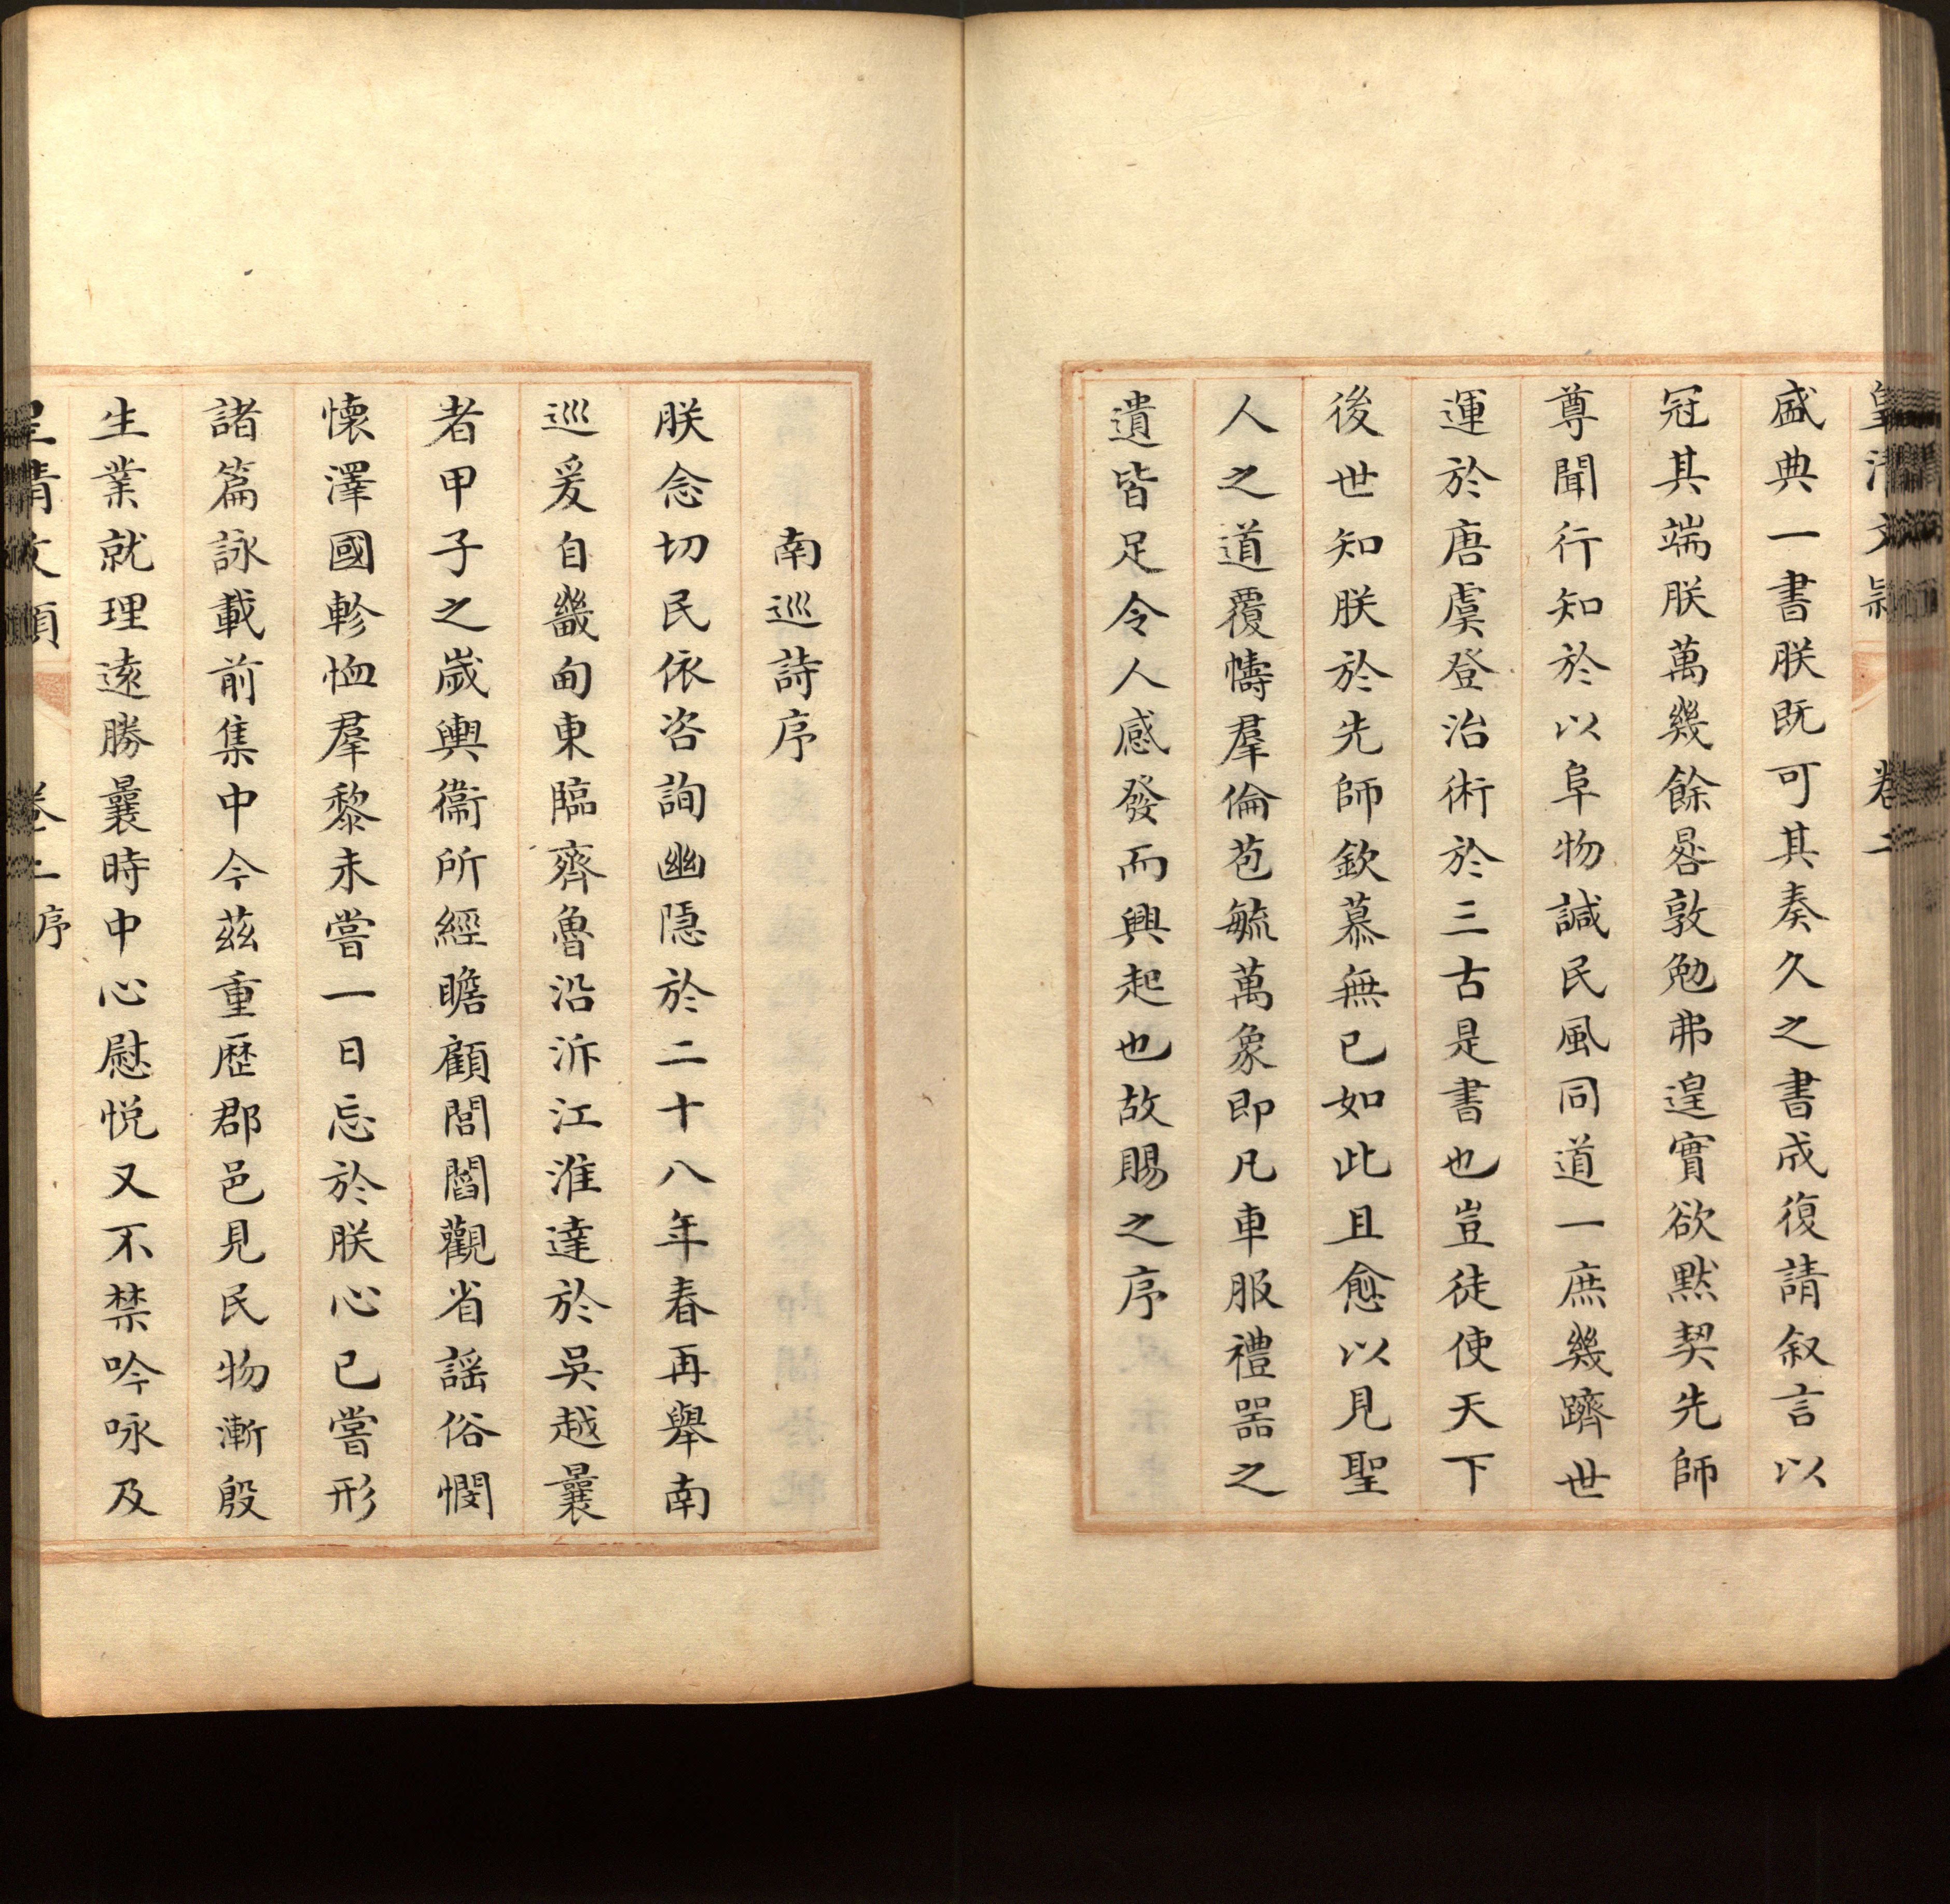 皇清文穎 卷二
盛典一書朕既可其奏久之書成復請叙言以
冠其端朕萬幾餘晷敦勉弗遑實欲默契先師
尊聞行知於以阜物諴民風同道一庶幾躋世
運於唐虞登治術於三古是書也豈徒使天下
後世知朕於先師欽慕無已如此且愈以見聖
人之道覆幬羣倫苞毓萬象即凡車服禮器之
遺皆足令人感發而興起也故賜之序
南巡詩序
朕念切民依咨詢幽隱於二十八年春再舉南
巡爰自畿甸東臨齊魯沿泝江淮達於吳越曩
者甲子之歲輿衞所經瞻顧閭閻觀省謡俗憫
懷澤國軫恤羣黎未嘗一日忘於朕心已嘗形
諸篇詠載前集中今茲重歷郡邑見民物漸殷
生業就理遠勝曩時中心慰悦又不禁吟咏及
皇清文穎 卷二 序